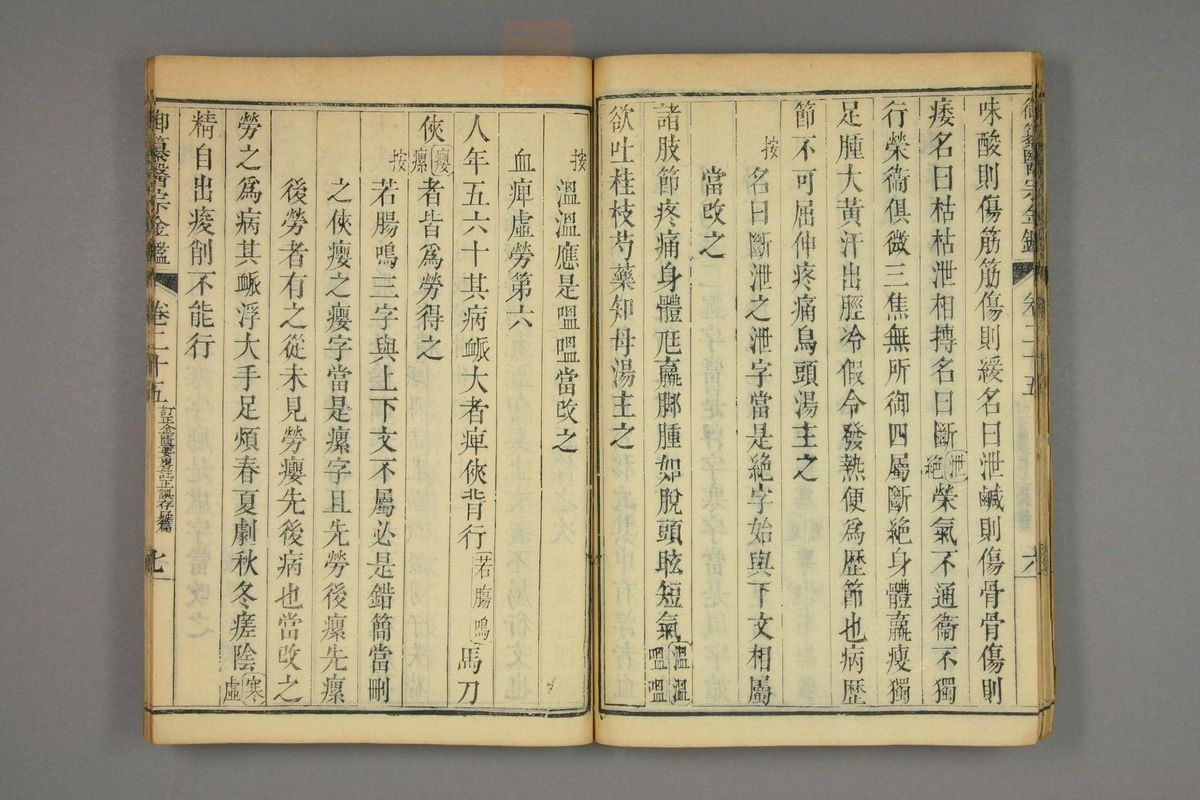 御纂醫宗金鑑 卷二十五 六
味酸則傷筋筋傷則緩名曰泄鹹則傷骨骨傷則
痿名曰枯枯泄相摶名曰斷泄絕榮氣不通衞不獨
行榮衞俱微三焦無所御四屬斷絕身體羸瘦獨
足腫大黃汗出脛冷假令發熱便爲歷節也病歷
節不可屈伸疼痛烏頭湯主之
按名曰斷泄之泄字當是絕字始與下文相屬
當改之
諸肢節疼痛身體尫羸脚腫如脫頭眩短氣溫溫嗢嗢
欲吐桂枝芍藥知母湯主之
按溫溫應是嗢嗢當改之
血痺虛勞第六
人年五六十其病䘑大者痺俠背行若腸鳴馬刀
俠癭瘰者皆爲勞得之
按若腸鳴三字與上下文不屬必是錯簡當刪
之俠癭之癭字當是瘰字且先勞後瘰先瘰
後勞者有之從未見勞癭先後病也當改之
勞之爲病其䘑浮大手足煩春夏劇秋冬瘥陰寒虛
精自出痠削不能行
御纂醫宗金鑑 卷二十五 訂正金匱要畧註正誤存疑篇 七